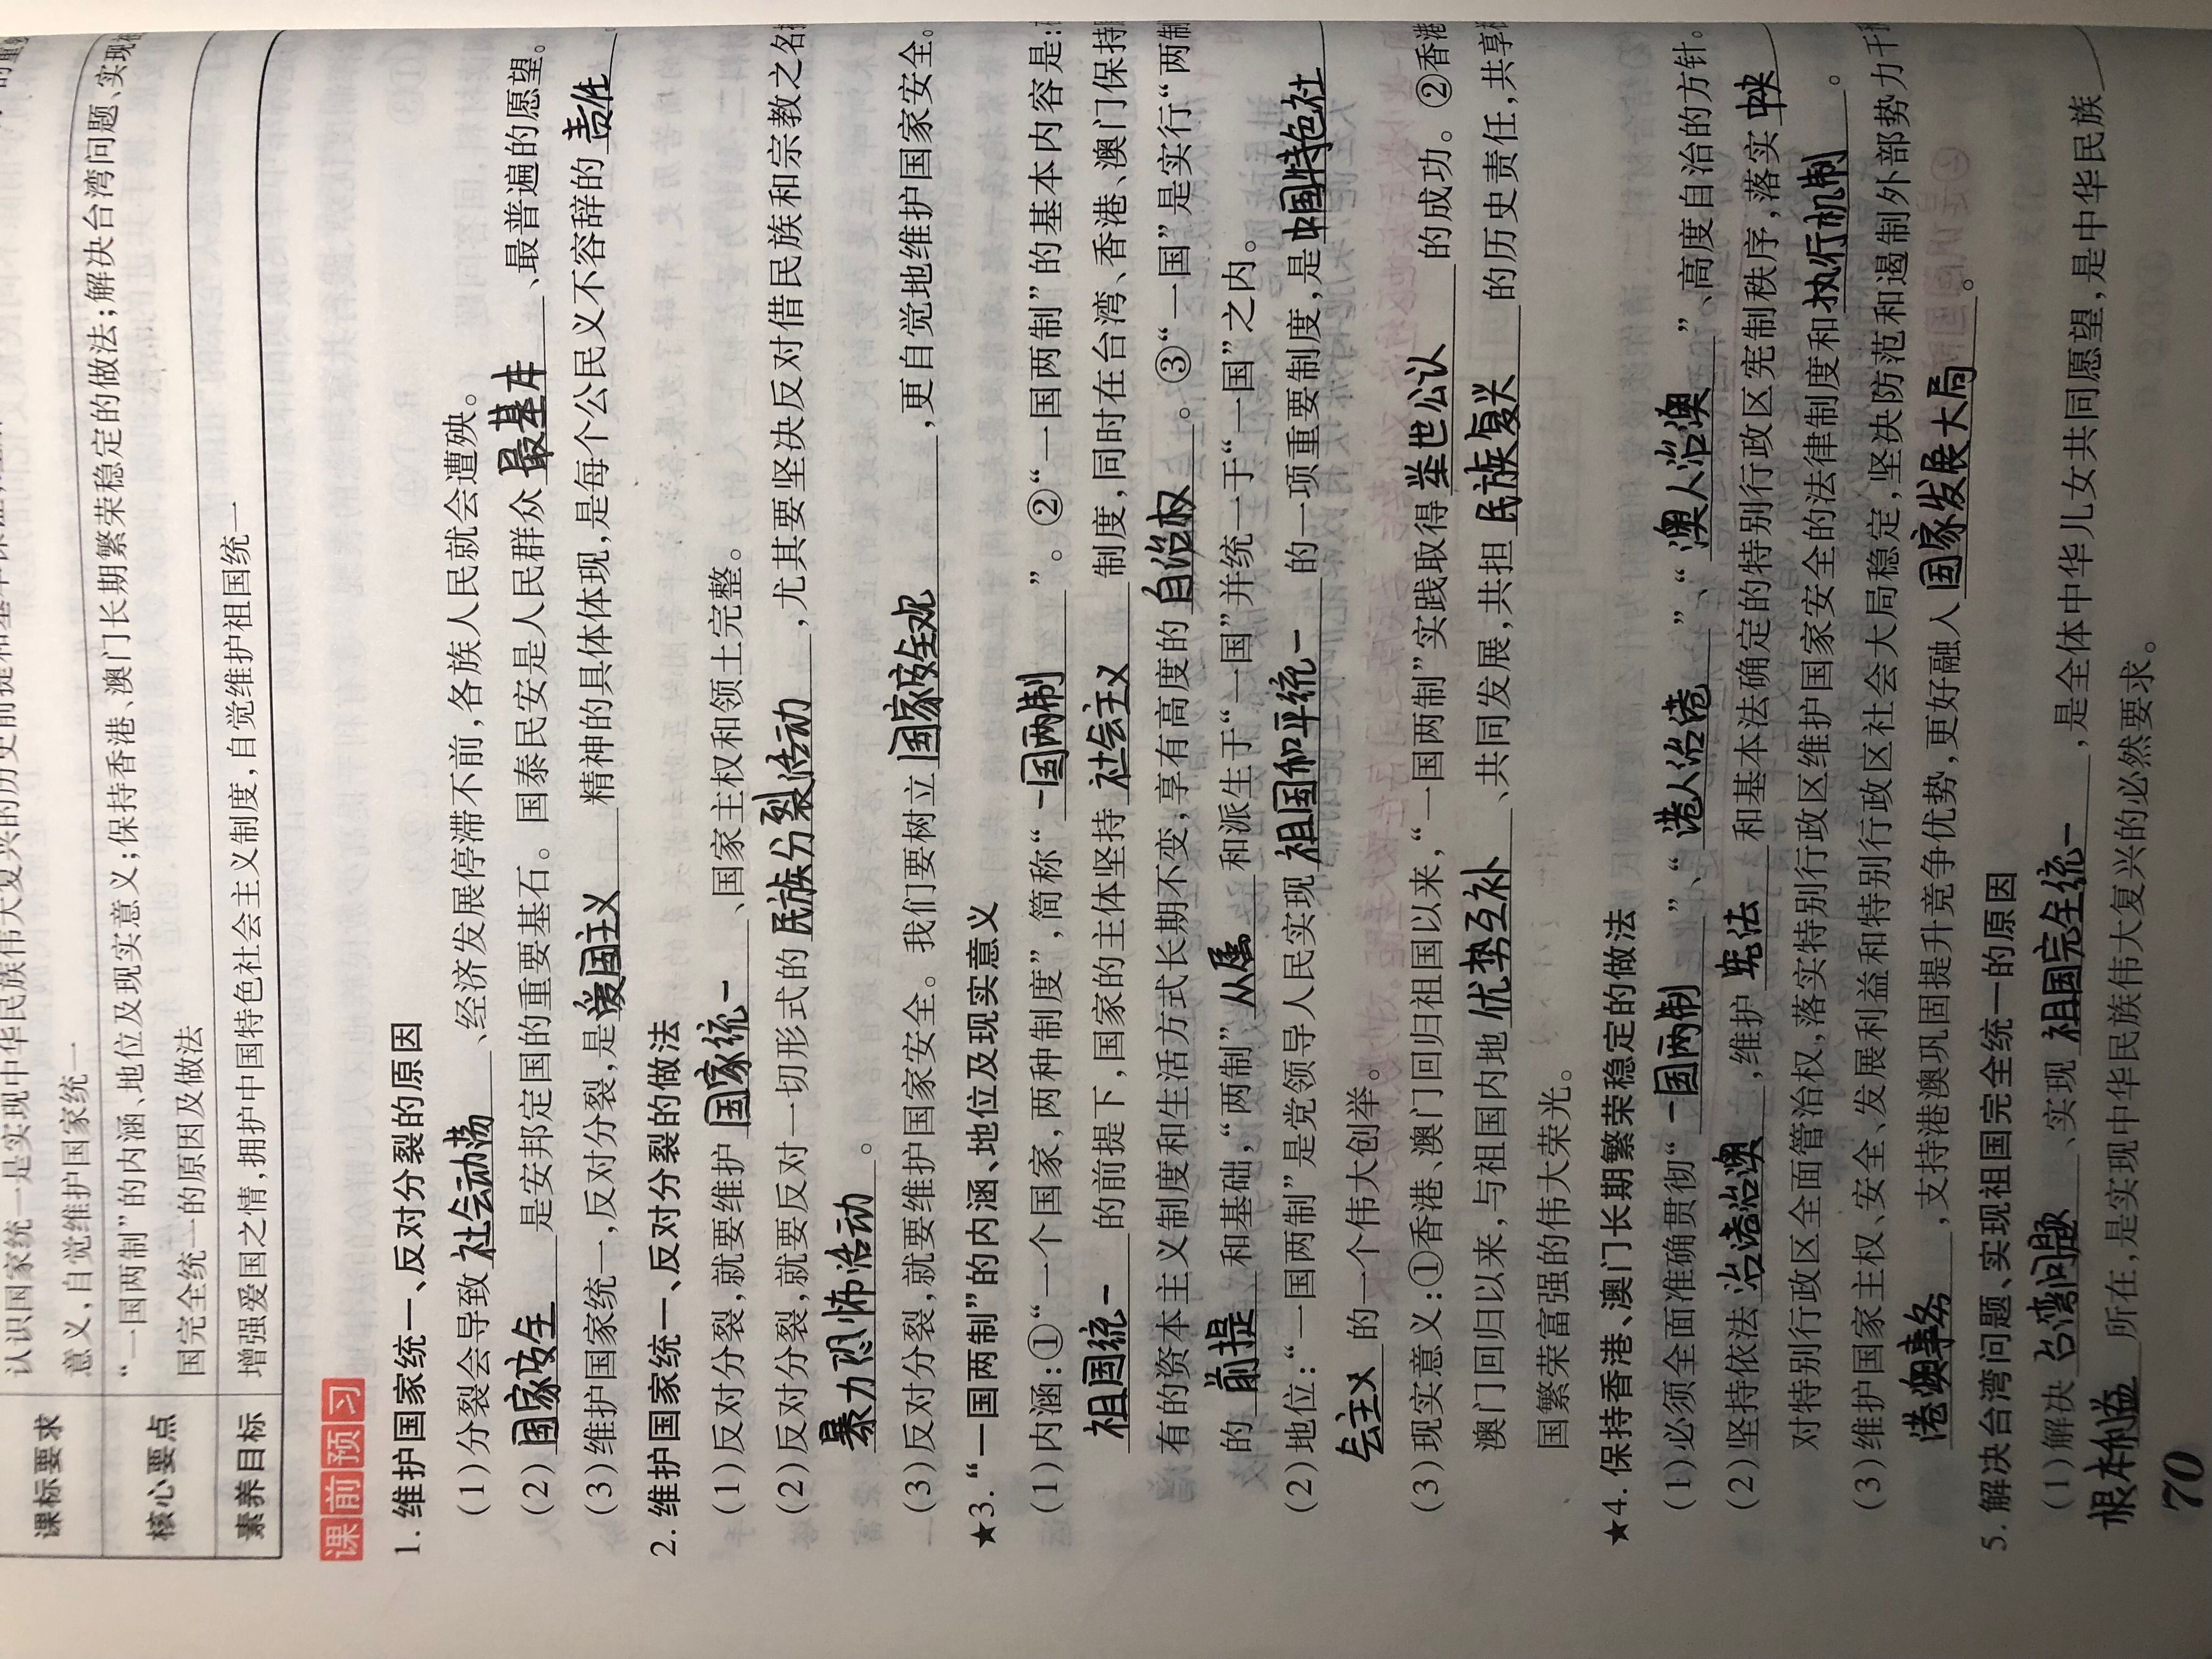 认识国家统一是实现中华民族伟大复兴的历史前提和基本保证
课标要求
意义,自觉维护国家统一
“一国两制”的内涵、地位及现实意义;保持香港、澳门长期繁荣稳定的做法;解决台湾问题、实现
核心要点
国完全统一的原因及做法
素养目标 增强爱国之情,拥护中国特色社会主义制度,自觉维护祖国统一
课前预习
1. 维护国家统一、反对分裂的原因
(1)分裂会导致 社会动荡 、经济发展停滞不前,各族人民就会遭殃。
(2) 国家安全 是安邦定国的重要基石。国泰民安是人民群众 最基本 、最普遍的愿望。
(3)维护国家统一,反对分裂,是 爱国主义 精神的具体体现,是每个公民义不容辞的 责任
2. 维护国家统一、反对分裂的做法
(1)反对分裂,就要维护 国家统一 、国家主权和领土完整。
(2)反对分裂,就要反对一切形式的 民族分裂活动 ,尤其要坚决反对借民族和宗教之名
暴力恐怖活动 。
(3)反对分裂,就要维护国家安全。我们要树立 国家安全观 ,更自觉地维护国家安全。
★3. “一国两制”的内涵、地位及现实意义
(1)内涵:①“一个国家,两种制度”,简称“ 一国两制 ”。②“一国两制”的基本内容是:
祖国统一 的前提下,国家的主体坚持 社会主义 制度,同时在台湾、香港、澳门保持
有的资本主义制度和生活方式长期不变,享有高度的 自治权 。③“一国”是实行“两制
的 前提 和基础,“两制” 从属 和派生于“一国”并统一于“一国”之内。
(2)地位:“一国两制”是党领导人民实现 祖国和平统一 的一项重要制度,是 中国特色社
会主义 的一个伟大创举。
(3)现实意义:①香港、澳门回归祖国以来,“一国两制”实践取得 举世公认 的成功。②香港
澳门回归以来,与祖国内地 优势互补 、共同发展,共担 民族复兴 的历史责任,共享
国繁荣富强的伟大荣光。
★4. 保持香港、澳门长期繁荣稳定的做法
(1)必须全面准确贯彻“ 一国两制 ”、“ 港人治港 ”、“ 澳人治澳 ”、高度自治的方针。
(2)坚持依法 治港治澳 ,维护 宪法 和基本法确定的特别行政区宪制秩序,落实 中央
对特别行政区全面管治权,落实特别行政区维护国家安全的法律制度和 执行机制 。
(3)维护国家主权、安全、发展利益和特别行政区社会大局稳定,坚决防范和遏制外部势力干
港澳事务 ,支持港澳巩固提升竞争优势,更好融入 国家发展大局 。
5. 解决台湾问题、实现祖国完全统一的原因
(1)解决 台湾问题 、实现 祖国完全统一 ,是全体中华儿女共同愿望,是中华民族
根本利益 所在,是实现中华民族伟大复兴的必然要求。
70